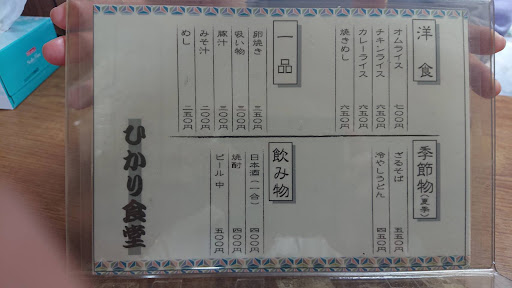 洋食
オムライス 七〇〇円
チキンライス 六五〇円
カレーライス 六五〇円
焼きめし 六五〇円
一品
卵焼き 三五〇円
吸い物 三〇〇円
豚汁 三〇〇円
みそ汁 二〇〇円
めし 二五〇円
季節物(夏季)
ざるそば 五五〇円
冷やしうどん 四五〇円
飲み物
日本酒(一合) 四〇〇円
焼酎 四〇〇円
ビール 中 五〇〇円
ひかり食堂